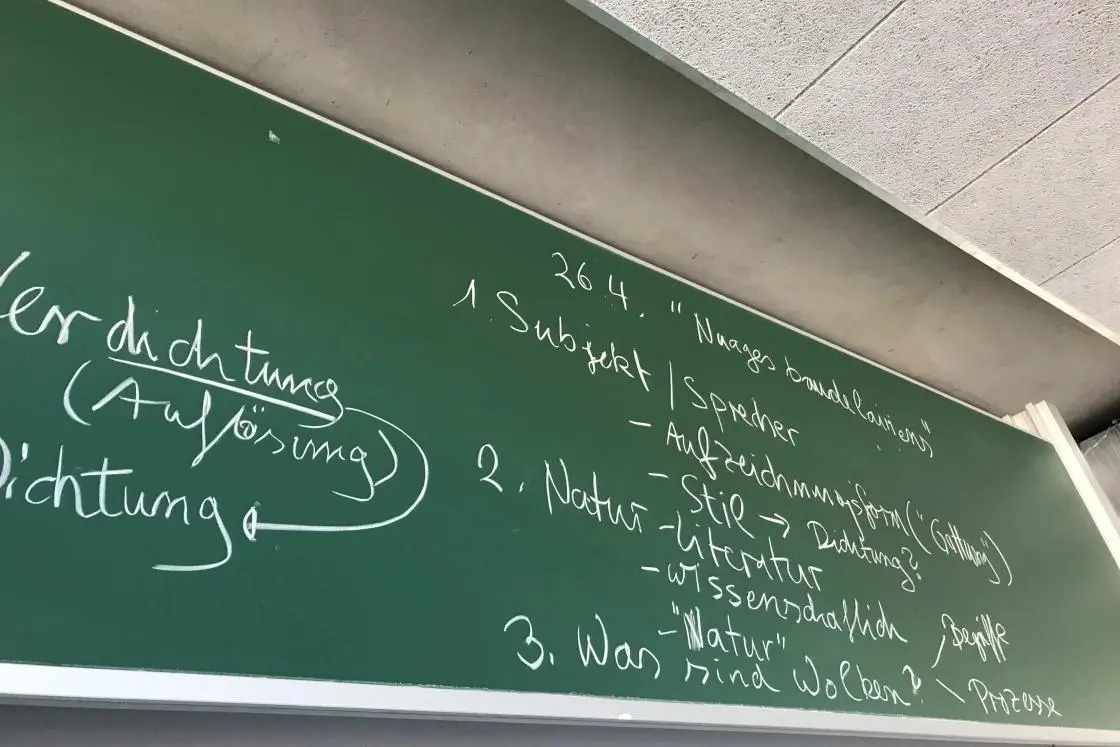 Verdichtung
(Auflösung)
Dichtung
26.4. "Nuages baudelairiens"
1. Subjekt / Sprecher
- Aufzeichnungsform ("Gattung")
- Stil → Dichtung?
2. Natur - Literatur
- wissenschaftlich
- "Natur"
3. Was sind Wolken?
Begriffe
Prozesse